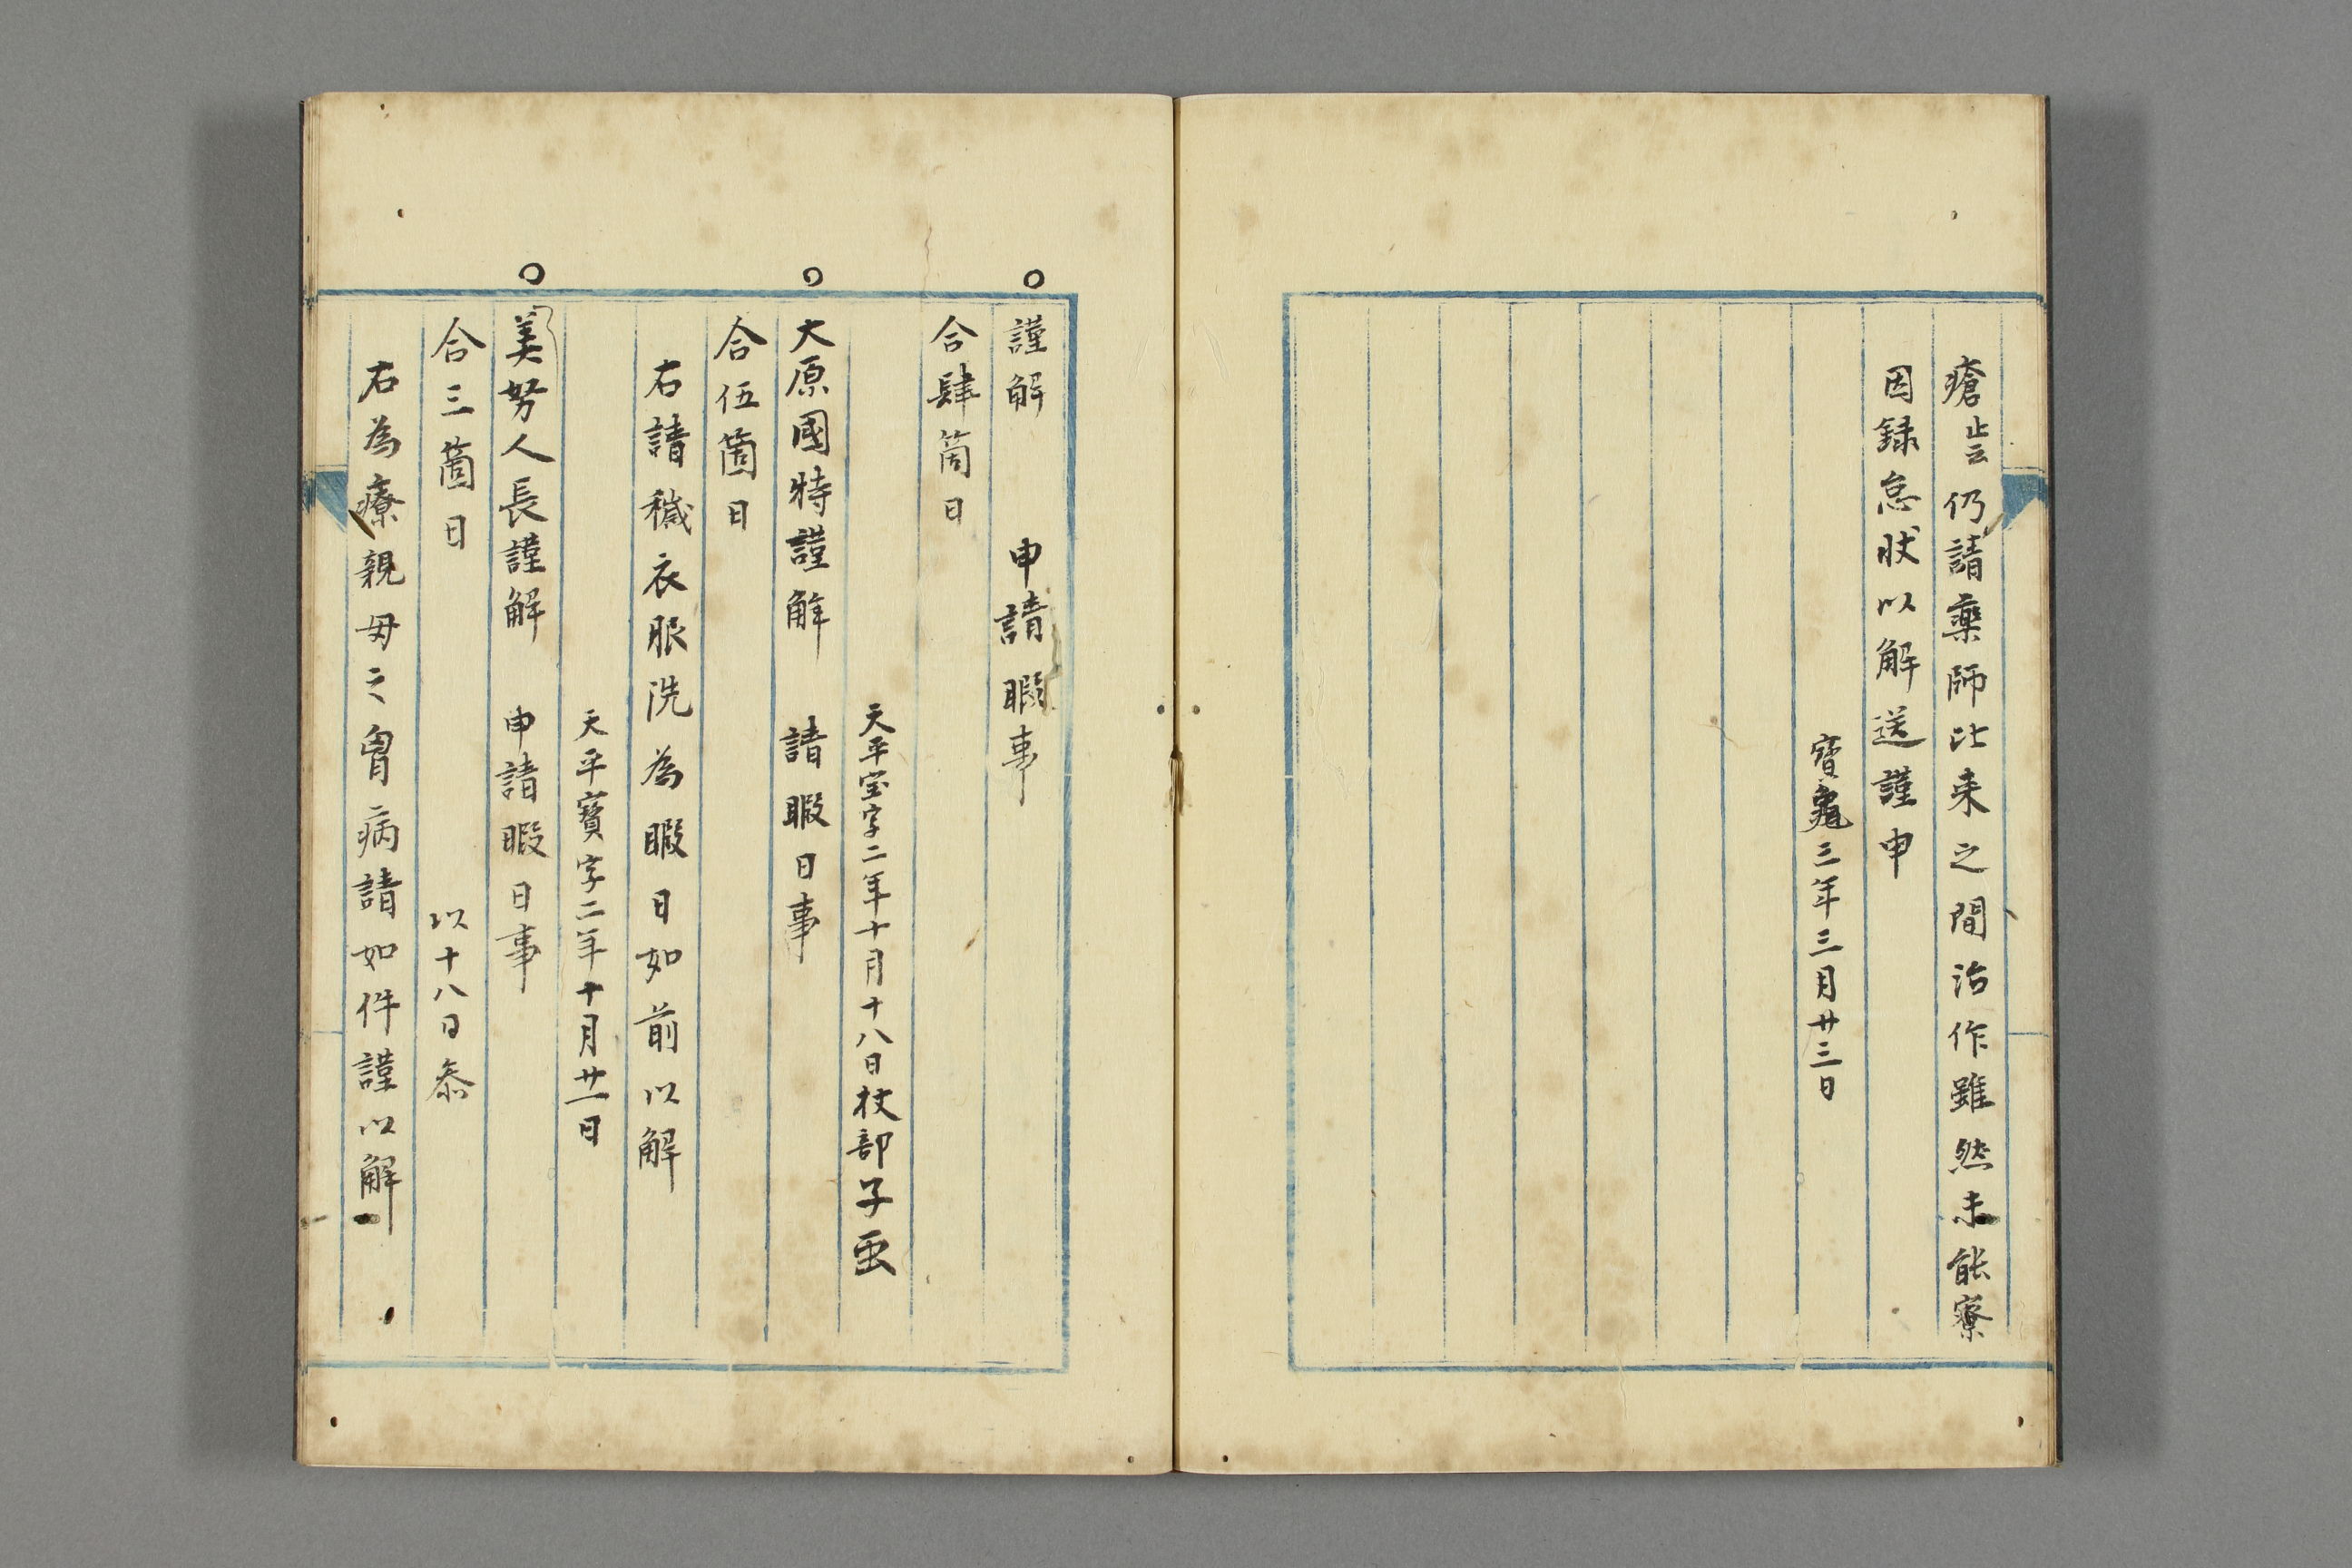 瘡止云仍請藥師比来之間治作雖然未能寮
因録怠状以解送謹申
寶龜三年三月廿三日
謹解　申請暇事
合肆箇日
天平宝字二年十月十八日杖部子虫
大原國持謹解　請暇日事
合伍箇日
右請穢衣服洗為暇日如前以解
天平寶字二年十月廿一日
美努人長謹解　申請暇日事
合三箇日
以十八日参
右為療親母之胷病請如件謹以解